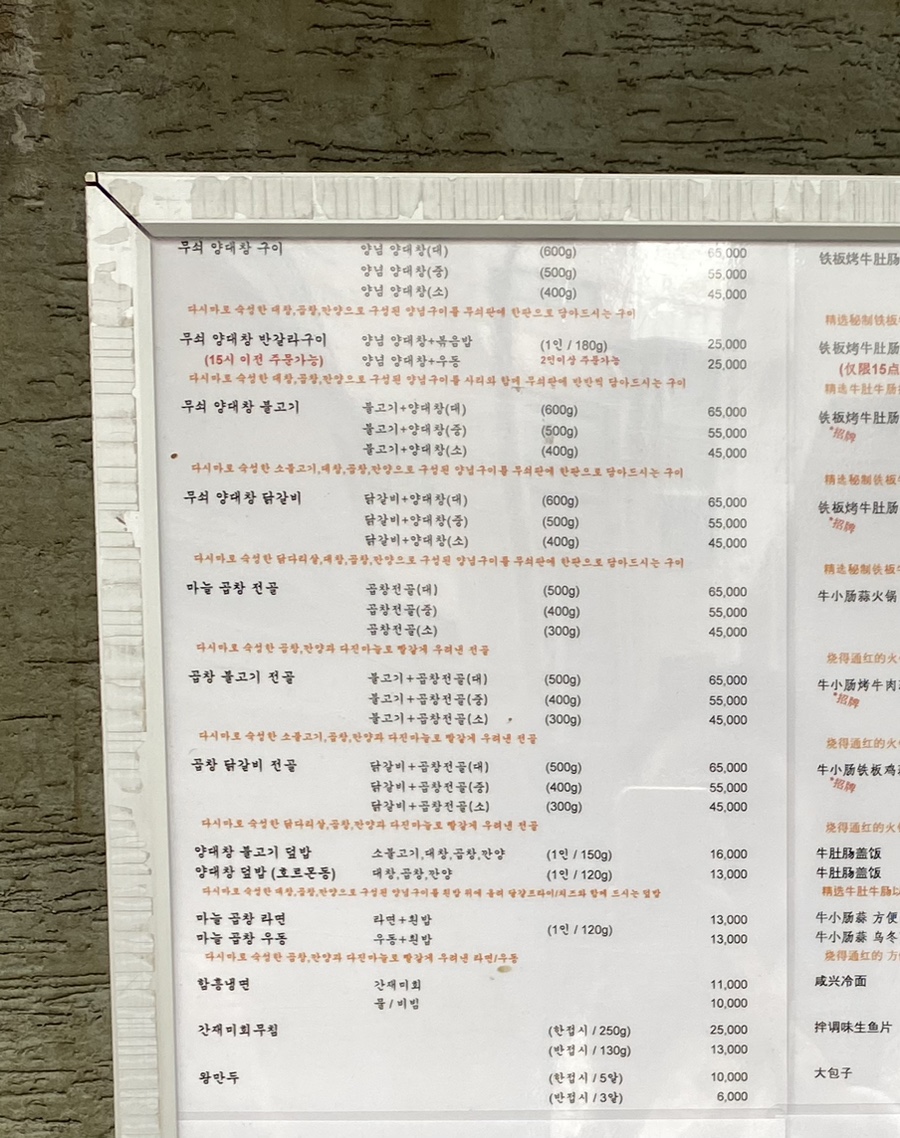 무쇠 양대창 구이 양념 양대창(대) (600g) 65,000 铁板烤牛肚肠
양념 양대창(중) (500g) 55,000
양념 양대창(소) (400g) 45,000
다시마로 숙성한 대창,곱창,깐양으로 구성된 양념구이를 무쇠판에 한판으로 담아드시는 구이 精选秘制铁板
무쇠 양대창 반갈라구이 양념 양대창+볶음밥 (1인 / 180g) 25,000 铁板烤牛肚肠
(15시 이전 주문가능) 양념 양대창+우동 2인이상 주문가능 25,000 (仅限15点
다시마로 숙성한 대창,곱창,깐양으로 구성된 양념구이를 사리와 함께 무쇠판에 반반씩 담아드시는 구이 精选牛肚牛肠
무쇠 양대창 불고기 불고기+양대창(대) (600g) 65,000 铁板烤牛肚肠
불고기+양대창(중) (500g) 55,000 *招牌
불고기+양대창(소) (400g) 45,000
다시마로 숙성한 소불고기,대창,곱창,깐양으로 구성된 양념구이를 무쇠판에 한판으로 담아드시는 구이 精选秘制铁板
무쇠 양대창 닭갈비 닭갈비+양대창(대) (600g) 65,000 铁板烤牛肚肠
닭갈비+양대창(중) (500g) 55,000 *招牌
닭갈비+양대창(소) (400g) 45,000
다시마로 숙성한 닭다리살,대창,곱창,깐양으로 구성된 양념구이를 무쇠판에 한판으로 담아드시는 구이 精选秘制铁板
마늘 곱창 전골 곱창전골(대) (500g) 65,000 牛小肠蒜火锅
곱창전골(중) (400g) 55,000
곱창전골(소) (300g) 45,000
다시마로 숙성한 곱창,깐양과 다진마늘로 빨갛게 우려낸 전골 烧得通红的火
곱창 불고기 전골 불고기+곱창전골(대) (500g) 65,000 牛小肠烤牛肉
불고기+곱창전골(중) (400g) 55,000 *招牌
불고기+곱창전골(소) (300g) 45,000
다시마로 숙성한 소불고기,곱창,깐양과 다진마늘로 빨갛게 우려낸 전골 烧得通红的火
곱창 닭갈비 전골 닭갈비+곱창전골(대) (500g) 65,000 牛小肠铁板鸡
닭갈비+곱창전골(중) (400g) 55,000 *招牌
닭갈비+곱창전골(소) (300g) 45,000
다시마로 숙성한 닭다리살,곱창,깐양과 다진마늘로 빨갛게 우려낸 전골 烧得通红的火
양대창 불고기 덮밥 소불고기,대창,곱창,깐양 (1인 / 150g) 16,000 牛肚肠盖饭
양대창 덮밥 (호르몬동) 대창,곱창,깐양 (1인 / 120g) 13,000 牛肚肠盖饭
다시마로 숙성한 대창,곱창,깐양으로 구성된 양념구이를 흰밥 위에 올려 달걀프라이/치즈와 함께 드시는 덮밥 精选牛肚牛肠以
마늘 곱창 라면 라면+흰밥 (1인 / 120g) 13,000 牛小肠蒜 方便
마늘 곱창 우동 우동+흰밥 13,000 牛小肠蒜 乌冬
다시마로 숙성한 곱창,깐양과 다진마늘로 빨갛게 우려낸 라면/우동 烧得通红的 方
함흥냉면 간재미회 11,000 咸兴冷面
물/비빔 10,000
간재미회무침 (한접시 / 250g) 25,000 拌调味生鱼片
(반접시 / 130g) 13,000
왕만두 (한접시 / 5알) 10,000 大包子
(반접시 / 3알) 6,000